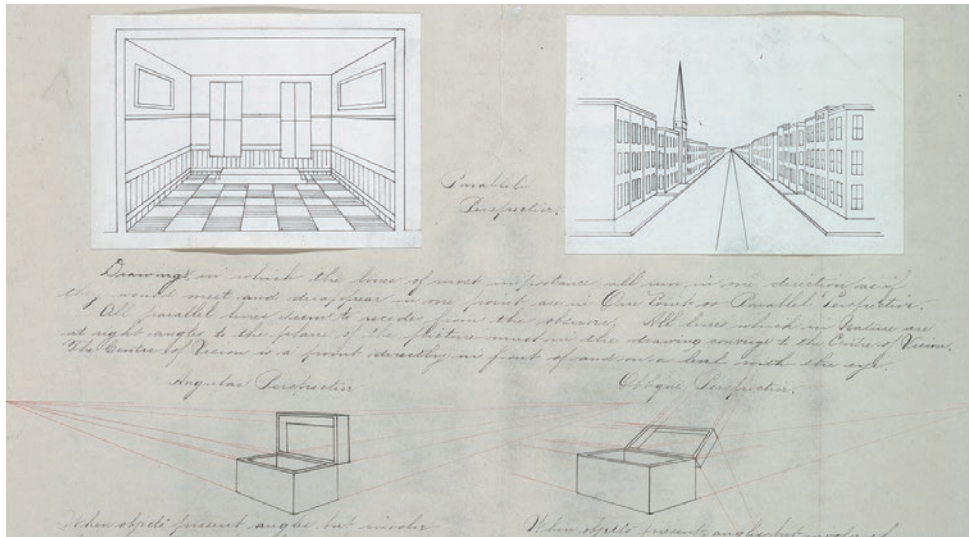 Parallel
Perspective.
Drawings in which the lines of most importance all run in one direction as if
they would meet and disappear in one point are in One Point or Parallel Perspective.
All parallel lines seem to recede from the observer. All lines which in Nature are
at right angles to the plane of the picture must in the drawing converge to the Centre of Vision.
The Centre of Vision is a point directly in front of and on a level with the eye.
Angular Perspective
Oblique Perspective.
When objects present angles but
When objects present angles but